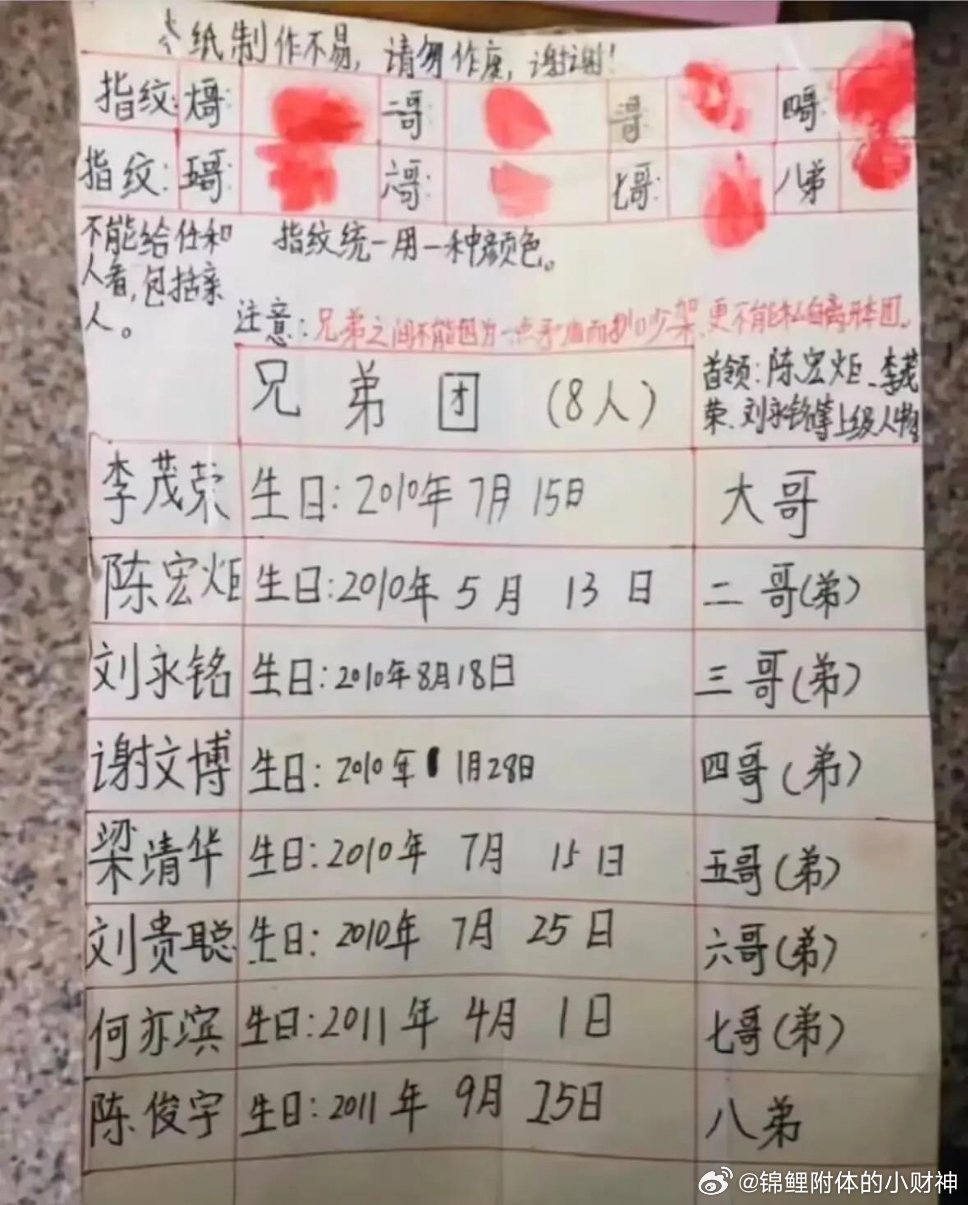 本纸制作不易，请勿作废，谢谢！
指纹：大哥： 二哥： 三哥： 四哥：
指纹：五哥： 六哥： 七哥： 八弟
不能给任和
人看，包括亲
人。
指纹统一用一种颜色。
注意：兄弟之间不能因为一点矛盾而扒口吵架，更不能私自离开本团。
兄弟团（8人）
首领：陈宏炬、李茂
荣、刘永铭等上级人物
李茂荣 生日：2010年7月15日 大哥
陈宏炬 生日：2010年5月13日 二哥（弟）
刘永铭 生日：2010年8月18日 三哥（弟）
谢文博 生日：2010年 1月28日 四哥（弟）
梁清华 生日：2010年7月15日 五哥（弟）
刘贵聪 生日：2010年7月25日 六哥（弟）
何亦滨 生日：2011年4月1日 七哥（弟）
陈俊宇 生日：2011年9月25日 八弟
@锦鲤附体的小财神